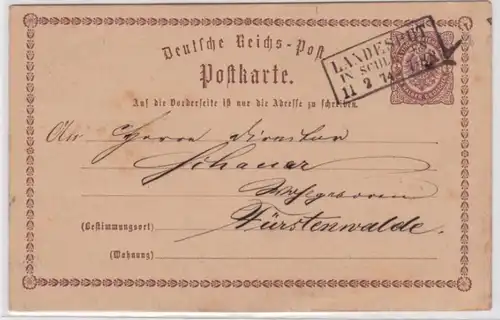 Deutsche Reichs-Post
Postkarte.
LANDESHUT
IN SCHL
11 2 74
Auf die Vorderseite ist nur die Adresse zu schreiben.
An Herrn Director
Schauer
Wohlgeboren
(Bestimmungsort) Fürstenwalde.
(Wohnung)